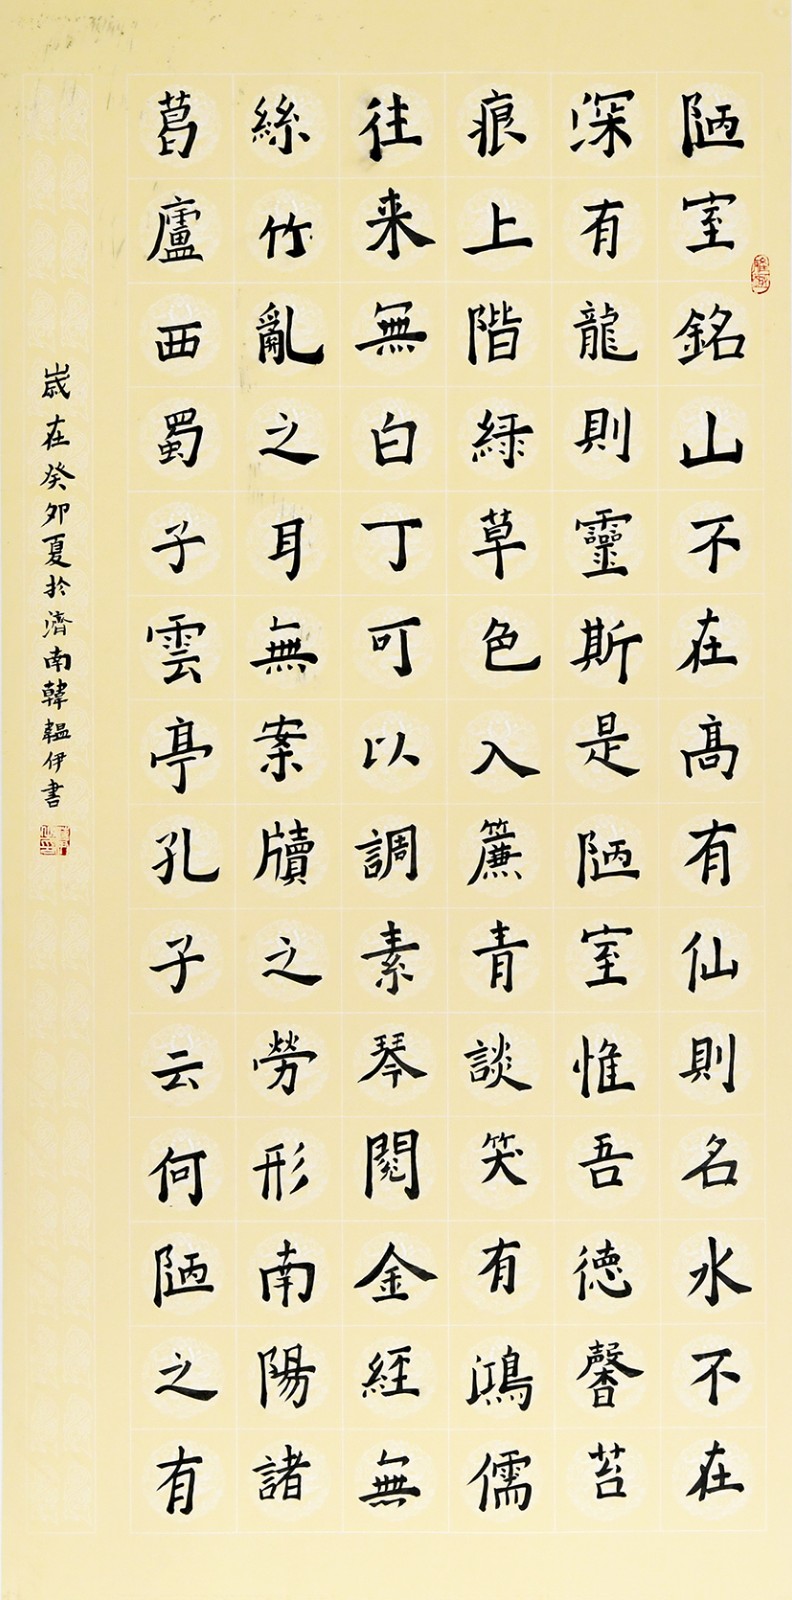 陋室銘山不在高有仙則名水不在
深有龍則靈斯是陋室惟吾德馨苔
痕上階綠草色入簾青談笑有鴻儒
往来無白丁可以調素琴閱金經無
絲竹亂之耳無案牘之勞形南陽諸
葛廬西蜀子雲亭孔子云何陋之有
歲在癸卯夏於濟南韓韞伊書